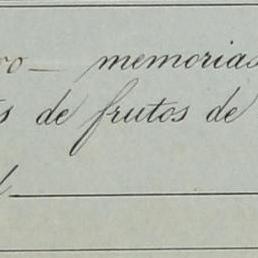 ro — memorias
s de frutos de